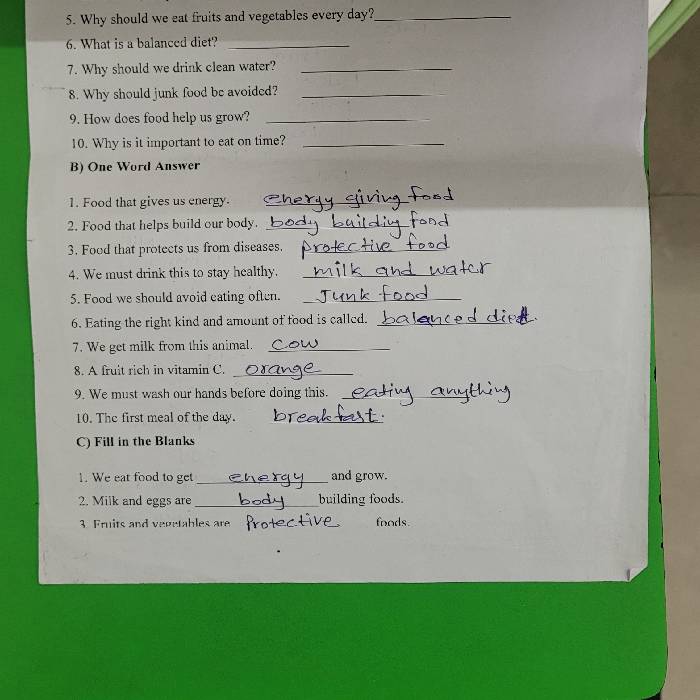 5. Why should we eat fruits and vegetables every day?
6. What is a balanced diet?
7. Why should we drink clean water?
8. Why should junk food be avoided?
9. How does food help us grow?
10. Why is it important to eat on time?
B) One Word Answer
1. Food that gives us energy. energy giving food
2. Food that helps build our body. body building food
3. Food that protects us from diseases. protective food
4. We must drink this to stay healthy. milk and water
5. Food we should avoid eating often. Junk food
6. Eating the right kind and amount of food is called. balanced diet.
7. We get milk from this animal. cow
8. A fruit rich in vitamin C. orange
9. We must wash our hands before doing this. eating anything
10. The first meal of the day. breakfast.
C) Fill in the Blanks
1. We eat food to get energy and grow.
2. Milk and eggs are body building foods.
3. Fruits and vegetables are Protective foods.